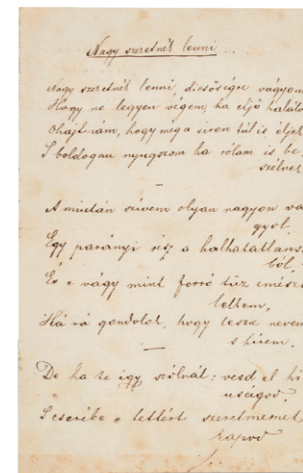 Nagy szeretnék lenni...
Nagy szeretnék lenni, dicsőségre vágyom
Hogy ne legyen végem, ha eljő halálo
Ohajtnám, hogy még a síron túl is éljek
S boldogan nyugszom ha rólam is be
szélnek
A miután szívem olyan nagyon vá
gyol,
Egy parányi rész a halhatatlans
ból,
És e vágy mint forró tűz emészt
lettem,
Há rá gondolok, hogy lessz nevem
s hírem.
De ha te így szólnál: vesd el hi
uságod.
S cserébe e tettért szerelmemet
kapod